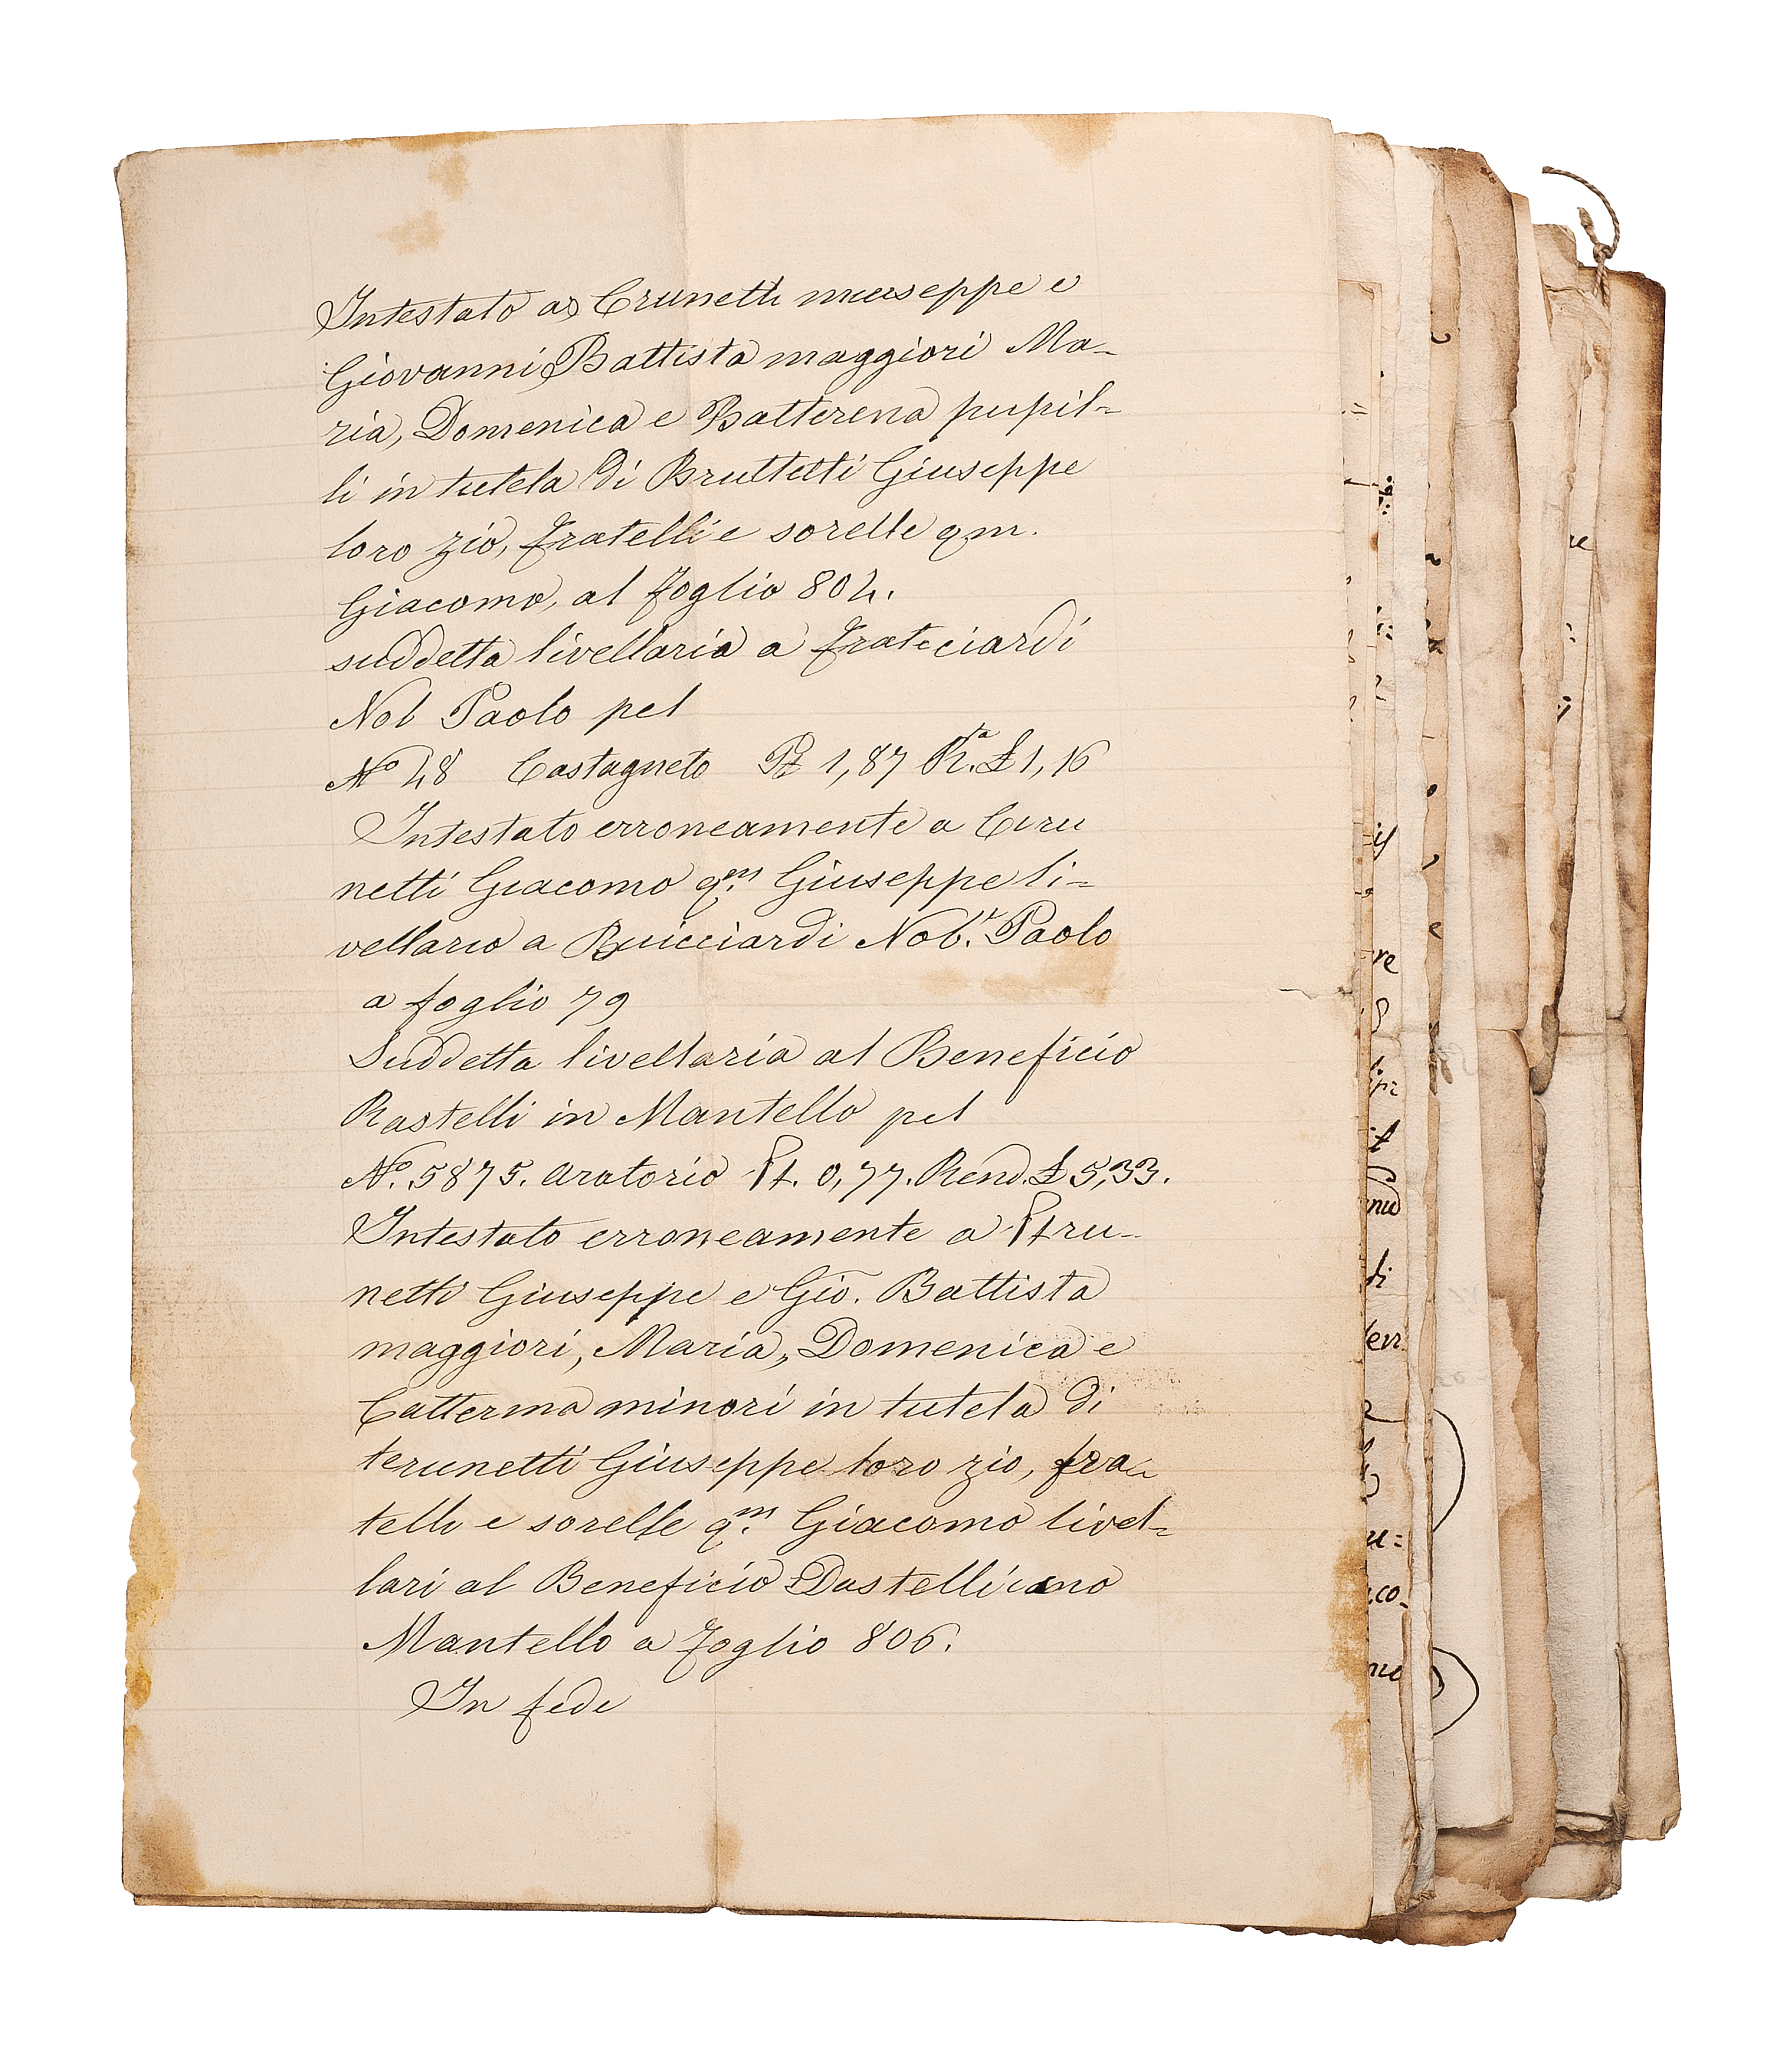 Intestato a Crunetti niuseppe e
Giovanni Battista maggiori Ma-
ria, Domenica e Batterena pupil=
li in tutela di Bruttetti Giuseppe
loro zio, fratelli e sorelle qm.
Giacomo, al foglio 804.
suddetta livellaria a Frateciardi
Nob Paolo pel
Nº 48 Castagneto Pt 1,87 R.ta £ 1,16
Intestato erroneamente a Ceru
netti Giacomo q.m Giuseppe li=
vellario a Buicciardi Nob.r Paolo
a foglio 79
Suddetta livellaria al Beneficio
Rastelli in Mantello pel
Nº. 5875. aratorio Pt. 0,77. Rend. £ 5,33.
Intestato erroneamente a Ptru-
netti Giuseppe e Gio. Battista
maggiori, Maria, Domenica e
Catterina minori in tutela di
terunetti Giuseppe loro zio, fra-
telli e sorelle q.m Giacomo livel=
lari al Beneficio
Mantello a foglio 806.
In fede